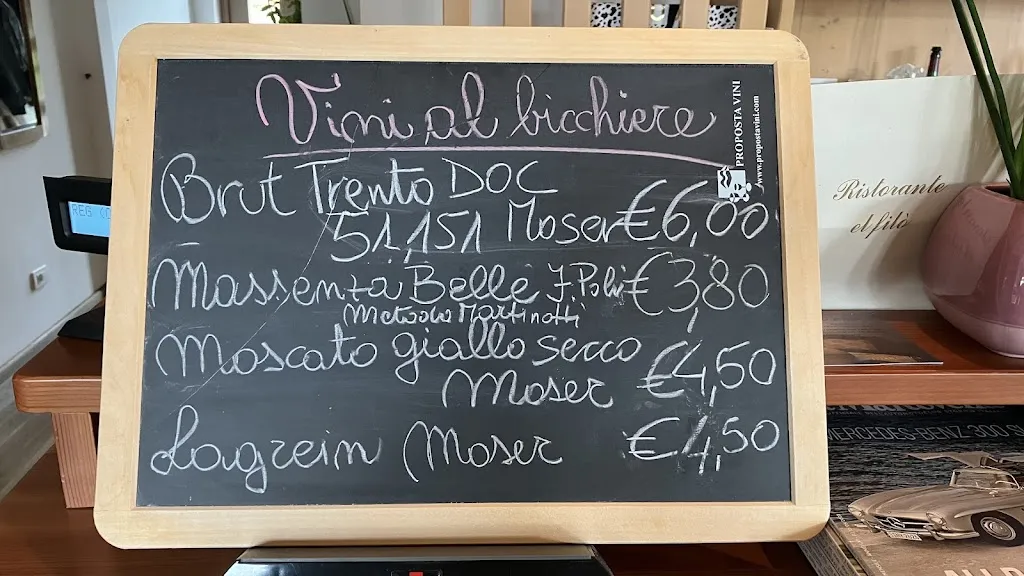 Vini al bicchiere
PROPOSTA VINI
www.propostavini.com
Brut Trento DOC
51,151 Moser €6,00
Massenza Belle F. Poli €3,80
(Metodo Martinotti)
Moscato giallo secco
Moser €4,50
Lagrein Moser €4,50
Ristorante
el filò
MERCEDES-BENZ 300 S